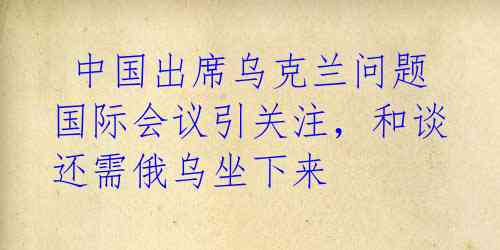 中国出席乌克兰问题
国际会议引关注，和谈
还需俄乌坐下来